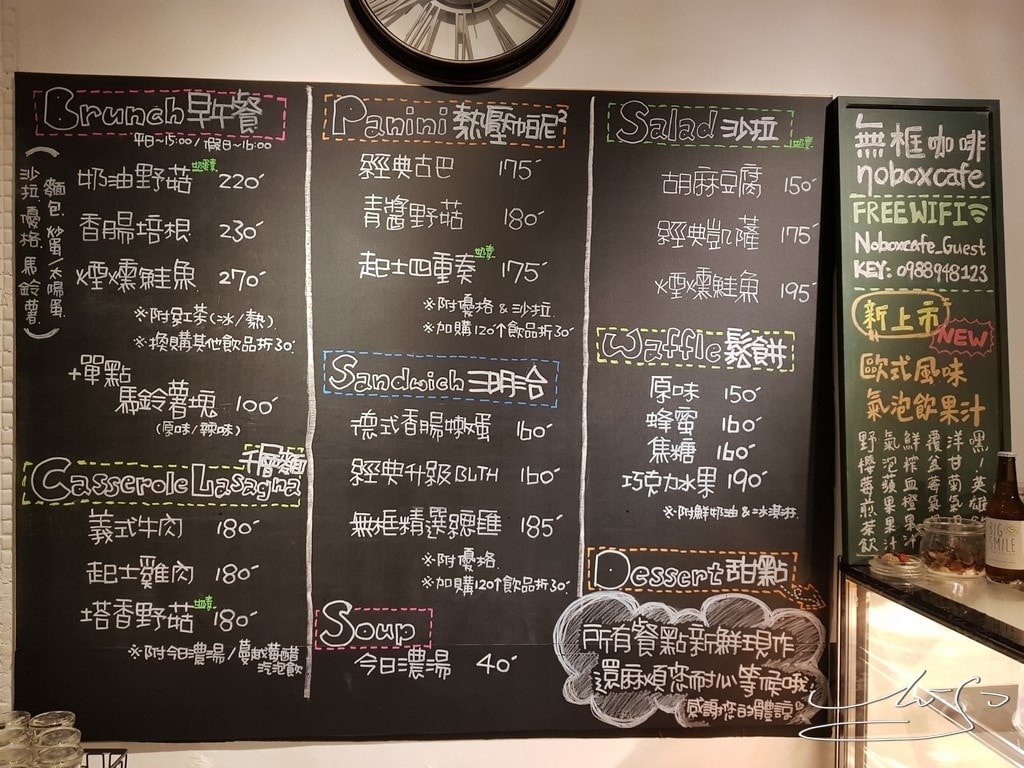 Brunch 早午餐
平日~15:00/假日~16:00
(麵包.蛋/太陽蛋
沙拉.優格.馬鈴薯)
奶油野菇 220
香腸培根 230
煙燻鮭魚 270
※附紅茶(冰/熱)
※換購其他飲品折30.
+單點
馬鈴薯塊 100
(原味/辣味)
千層麵
Casserole Lasagna
義式牛肉 180
起士雞肉 180
塔香野菇 180
※附今日濃湯/蔓越莓醋
汽泡飲
Panini 熱壓帕尼2
經典古巴 175
青醬野菇 180
起士四重奏 奶素 175
※附優格 & 沙拉.
※加購120↑飲品折30.
Sandwich 三明治
德式香腸嫩蛋 160
經典升級BLTH 160
無框精選總匯 185
※附優格.
※加購120↑飲品折30.
Soup
今日濃湯 40
Salad 沙拉
胡麻豆腐 150
經典凱薩 175
煙燻鮭魚 195
Waffle 鬆餅
原味 150
蜂蜜 160
焦糖 160
巧克力水果 190
※附鮮奶油 & 冰淇淋.
Dessert 甜點
所有餐點新鮮現作
還麻煩您耐心等候哦
感謝您的體諒
無框咖啡
noboxcafe
FREE WIFI
Noboxcafe_Guest
KEY: 0988948123
新上市
NEW
歐式風味
氣泡飲果汁
野櫻莓煎茶飲
氣泡蘋果果汁
鮮榨血橙果汁
覆盆莓氣
洋甘菊氣
黑.英雄
BIG
SMILE